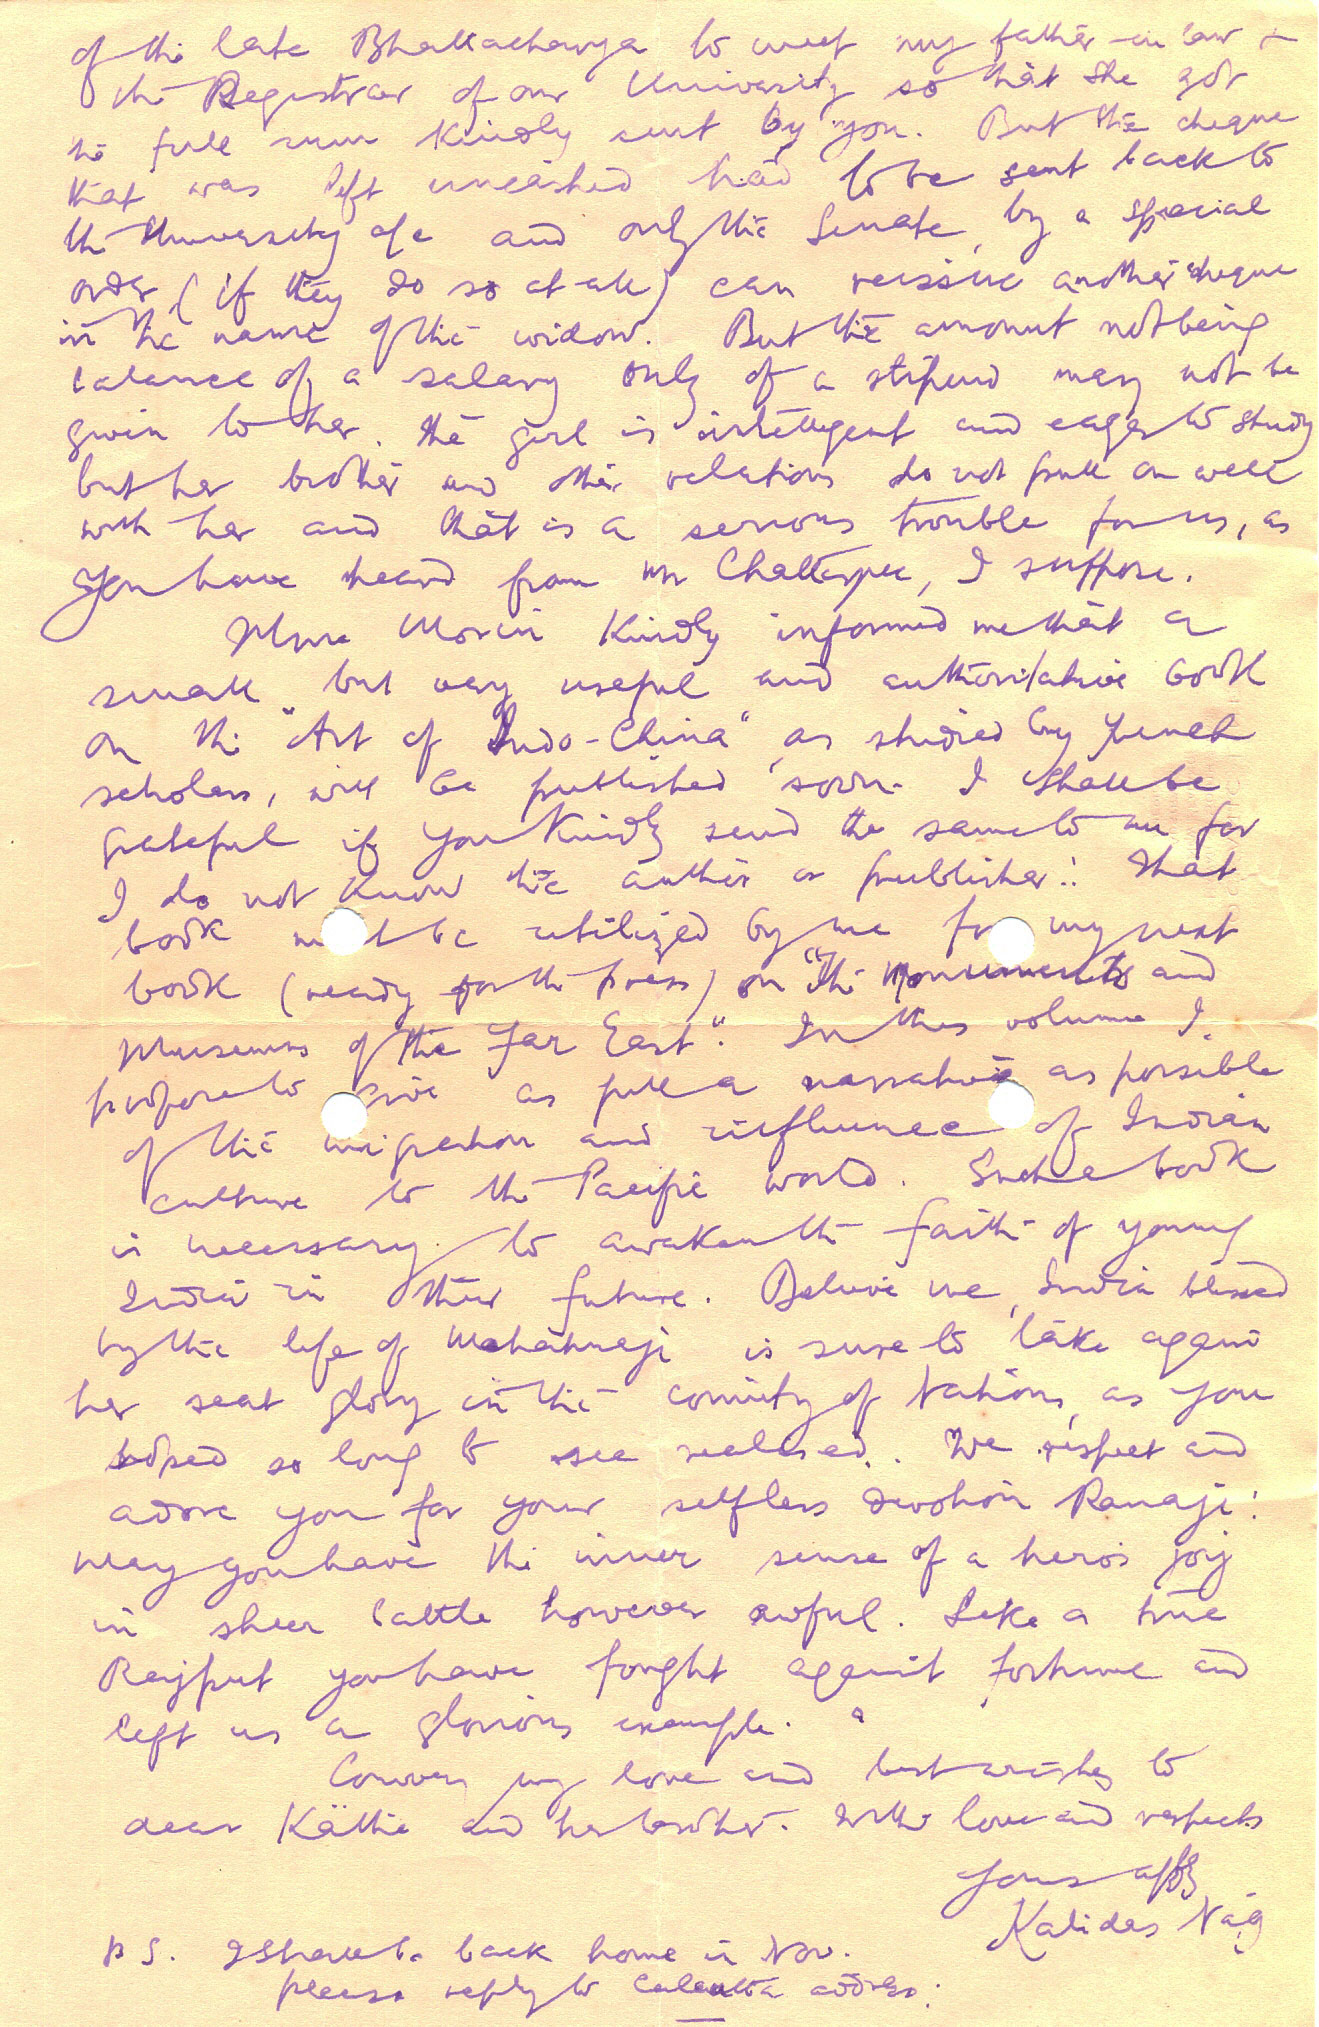 of the late Bhattacharya to meet my father-in-law &
the Registrar of our University so that she got
the full sum kindly sent by you. But the cheque
that was left uncashed had to be sent back to
the University a/c and only the Senate, by a special
order (if they do so at all) can reissue another cheque
in the name of the widow. But the amount not being
balance of a salary only of a stipend may not be
given to her. The girl is intelligent and eager to study
but her brother and other relations do not pull on well
with her and that is a serious trouble for us, as
you have heard from Mr Chatterjee, I suppose.
Mme Morin kindly informed me that a
small but very useful and authoritative book
on the "Art of Indo-China" as studied by French
scholars, will be published soon. I shall be
grateful if you kindly send the same to me for
I do not know the author or publisher! That
book must be utilized by me for my next
book (ready for the press) on "The Monuments and
Museums of the Far East". In this volume I
propose to give as full a narrative as possible
of the migration and influence of Indian
culture to the Pacific world. Such a book
is necessary to awaken the faith of young
India in their future. Believe me, India blessed
by the life of Mahatmaji is sure to take again
her seat glory in the comity of Nations, as you
hoped so long to see realised. We respect and
adore you for your selfless devotion Ranaji!
May you have the inner sense of a hero's joy
in sheer battle however awful. Like a true
Rajput you have fought against fortune and
left us a glorious example.
Convey my love and best wishes to
dear Käthe and her brother. With love and respects
Yours affly
Kalidas Nag
P S. I shall be back home in Nov.
please reply to Calcutta address.